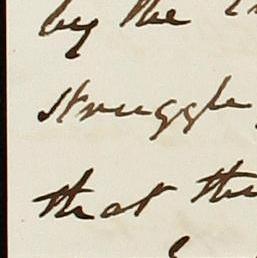 by the
struggle
that the